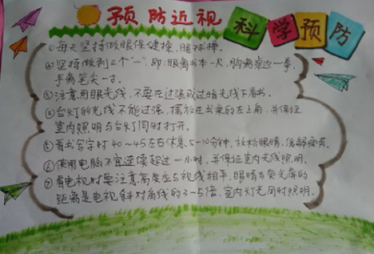 预防近视
科学预防
①每天坚持做眼保健操,眼标棒。
②坚持做到三个"一",即:眼离书本一尺,胸离桌边一拳,
手离笔尖一寸。
③注意用眼光线,不要在过强或过暗光线下看书。
④台灯的光线不能过强,摆放在书桌的左上角,并保证
室内照明与台灯同时打开。
⑤看书写字时40~45左右休息5-10分钟,放松眼睛,缓解疲劳。
⑥使用电脑不宜连续超过一小时,并保证室内光线照明。
⑦看电视时要注意高度应与视线相平,眼睛与荧光屏的
距离是电视斜对角线的3-5倍,室内灯光同时照明。